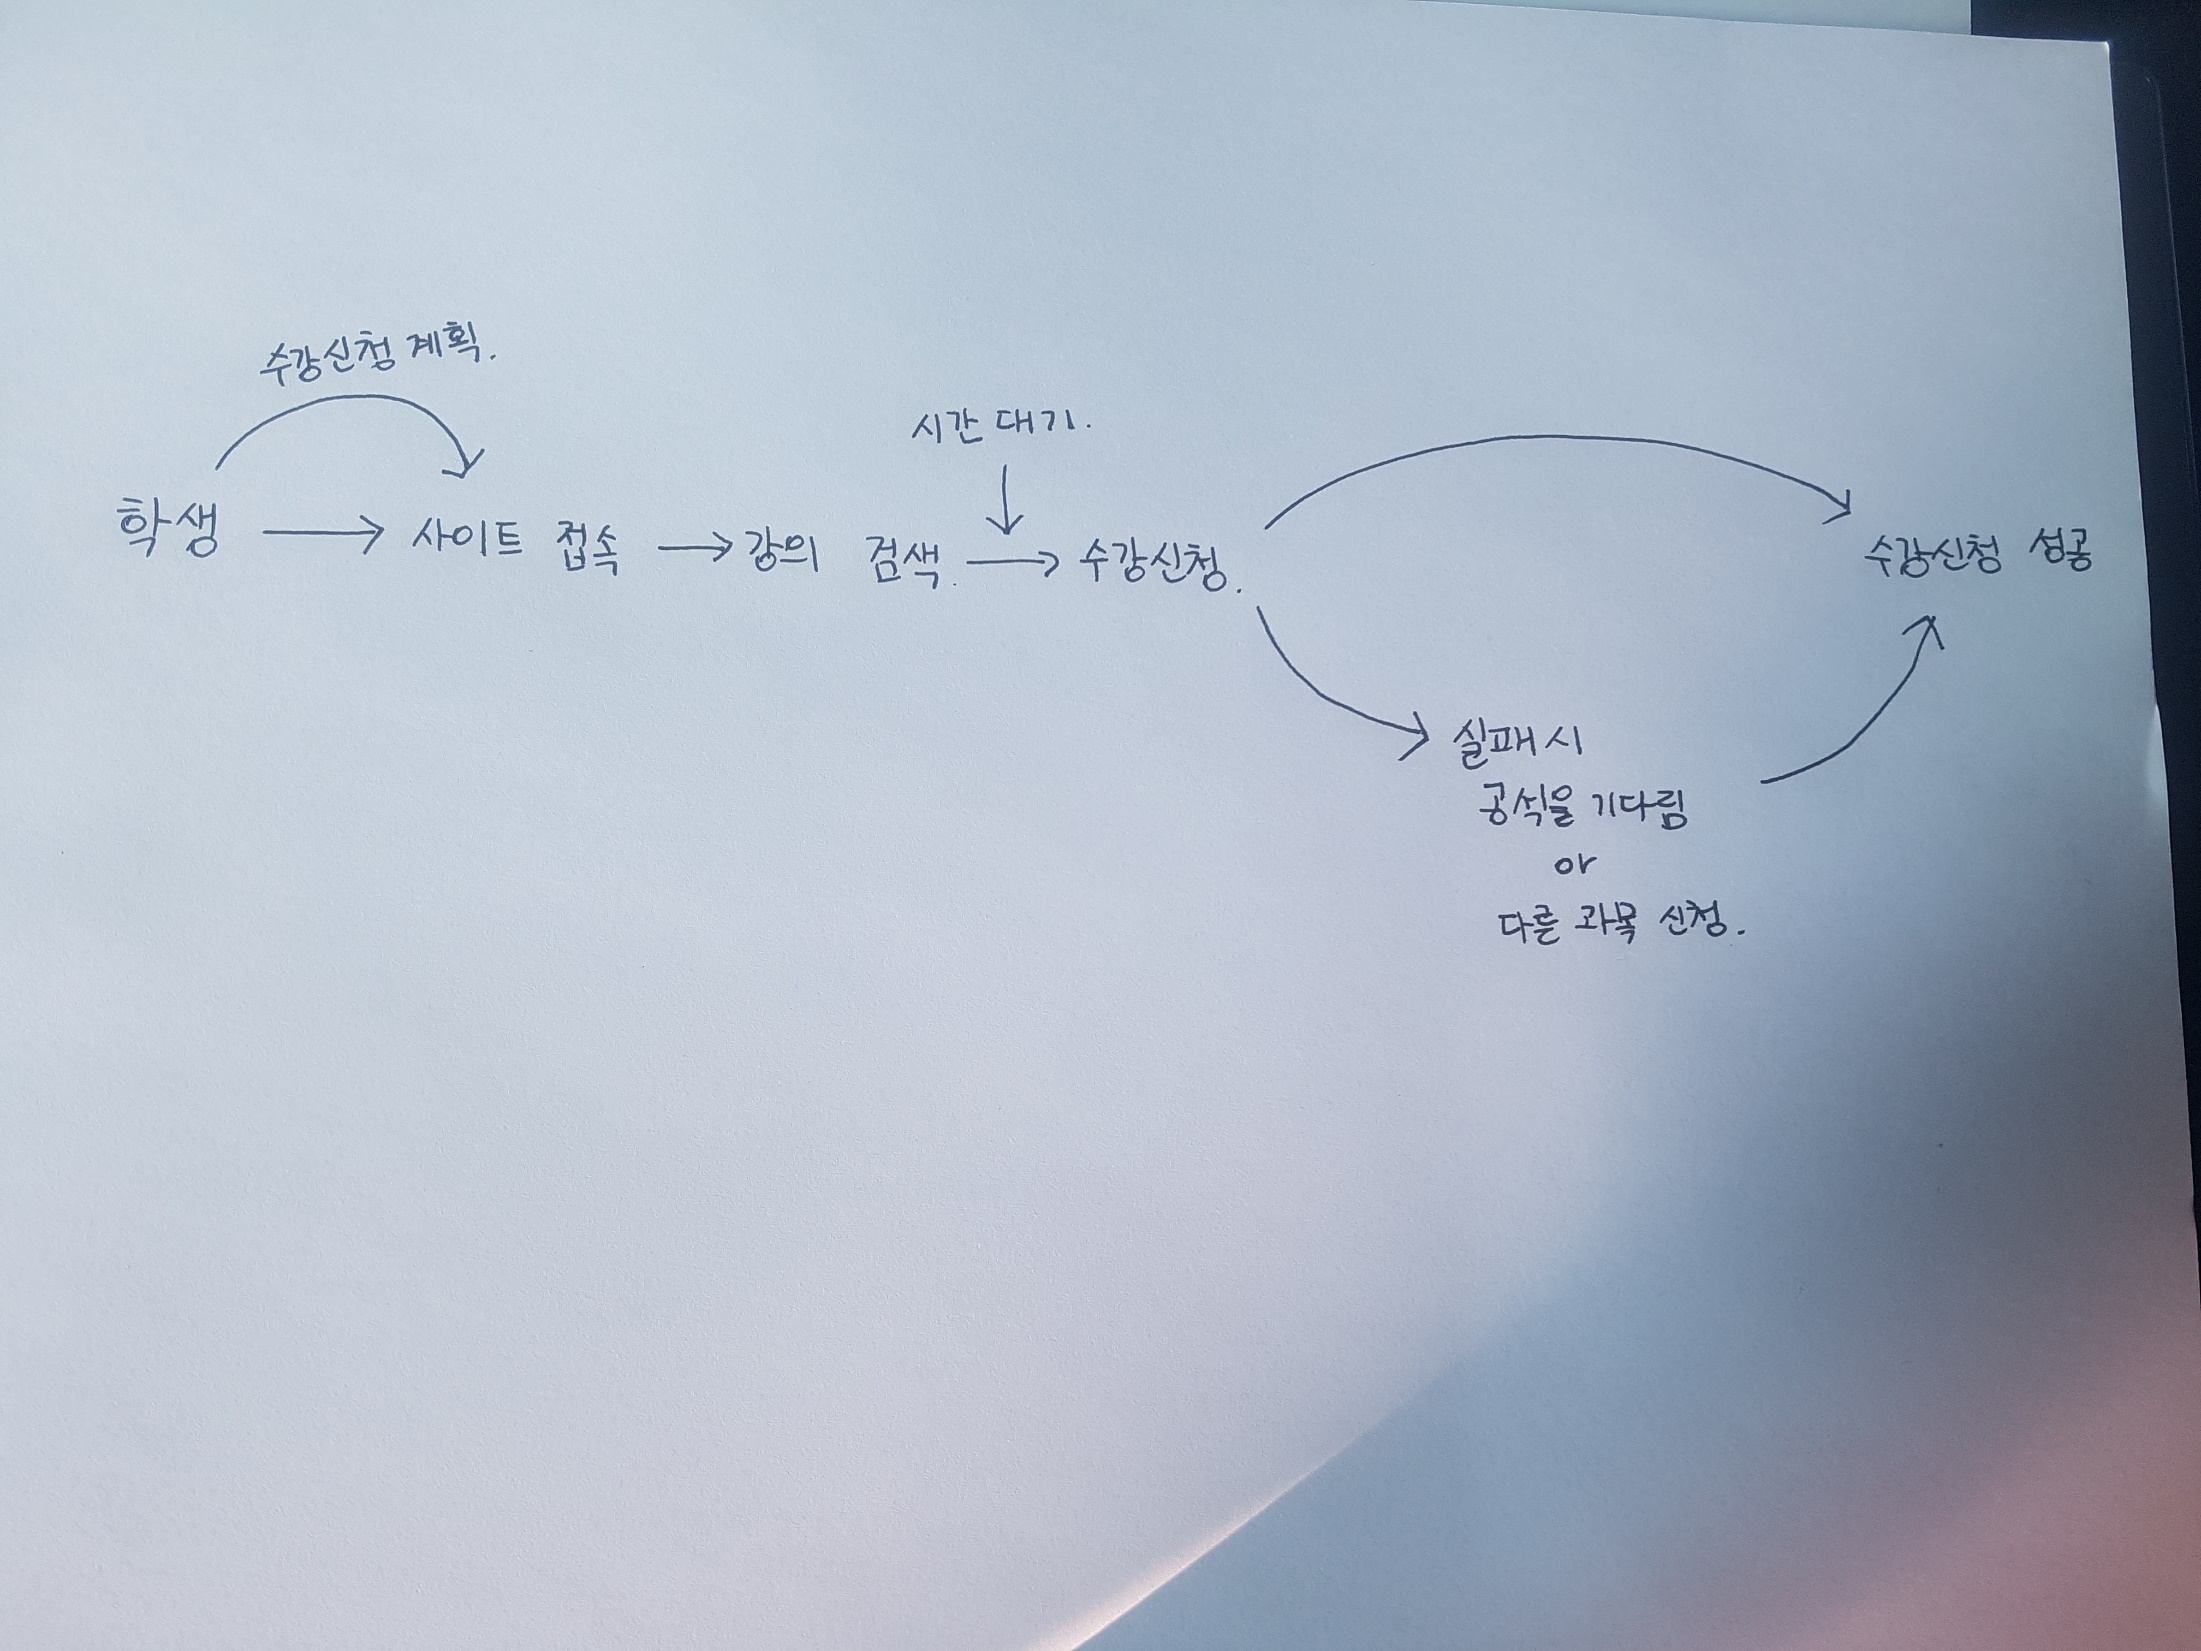 수강신청 계획.
시간 대기.
학생 → 사이트 접속 → 강의 검색. → 수강신청.
수강신청 성공
실패 시
공석을 기다림
or
다른 과목 신청.